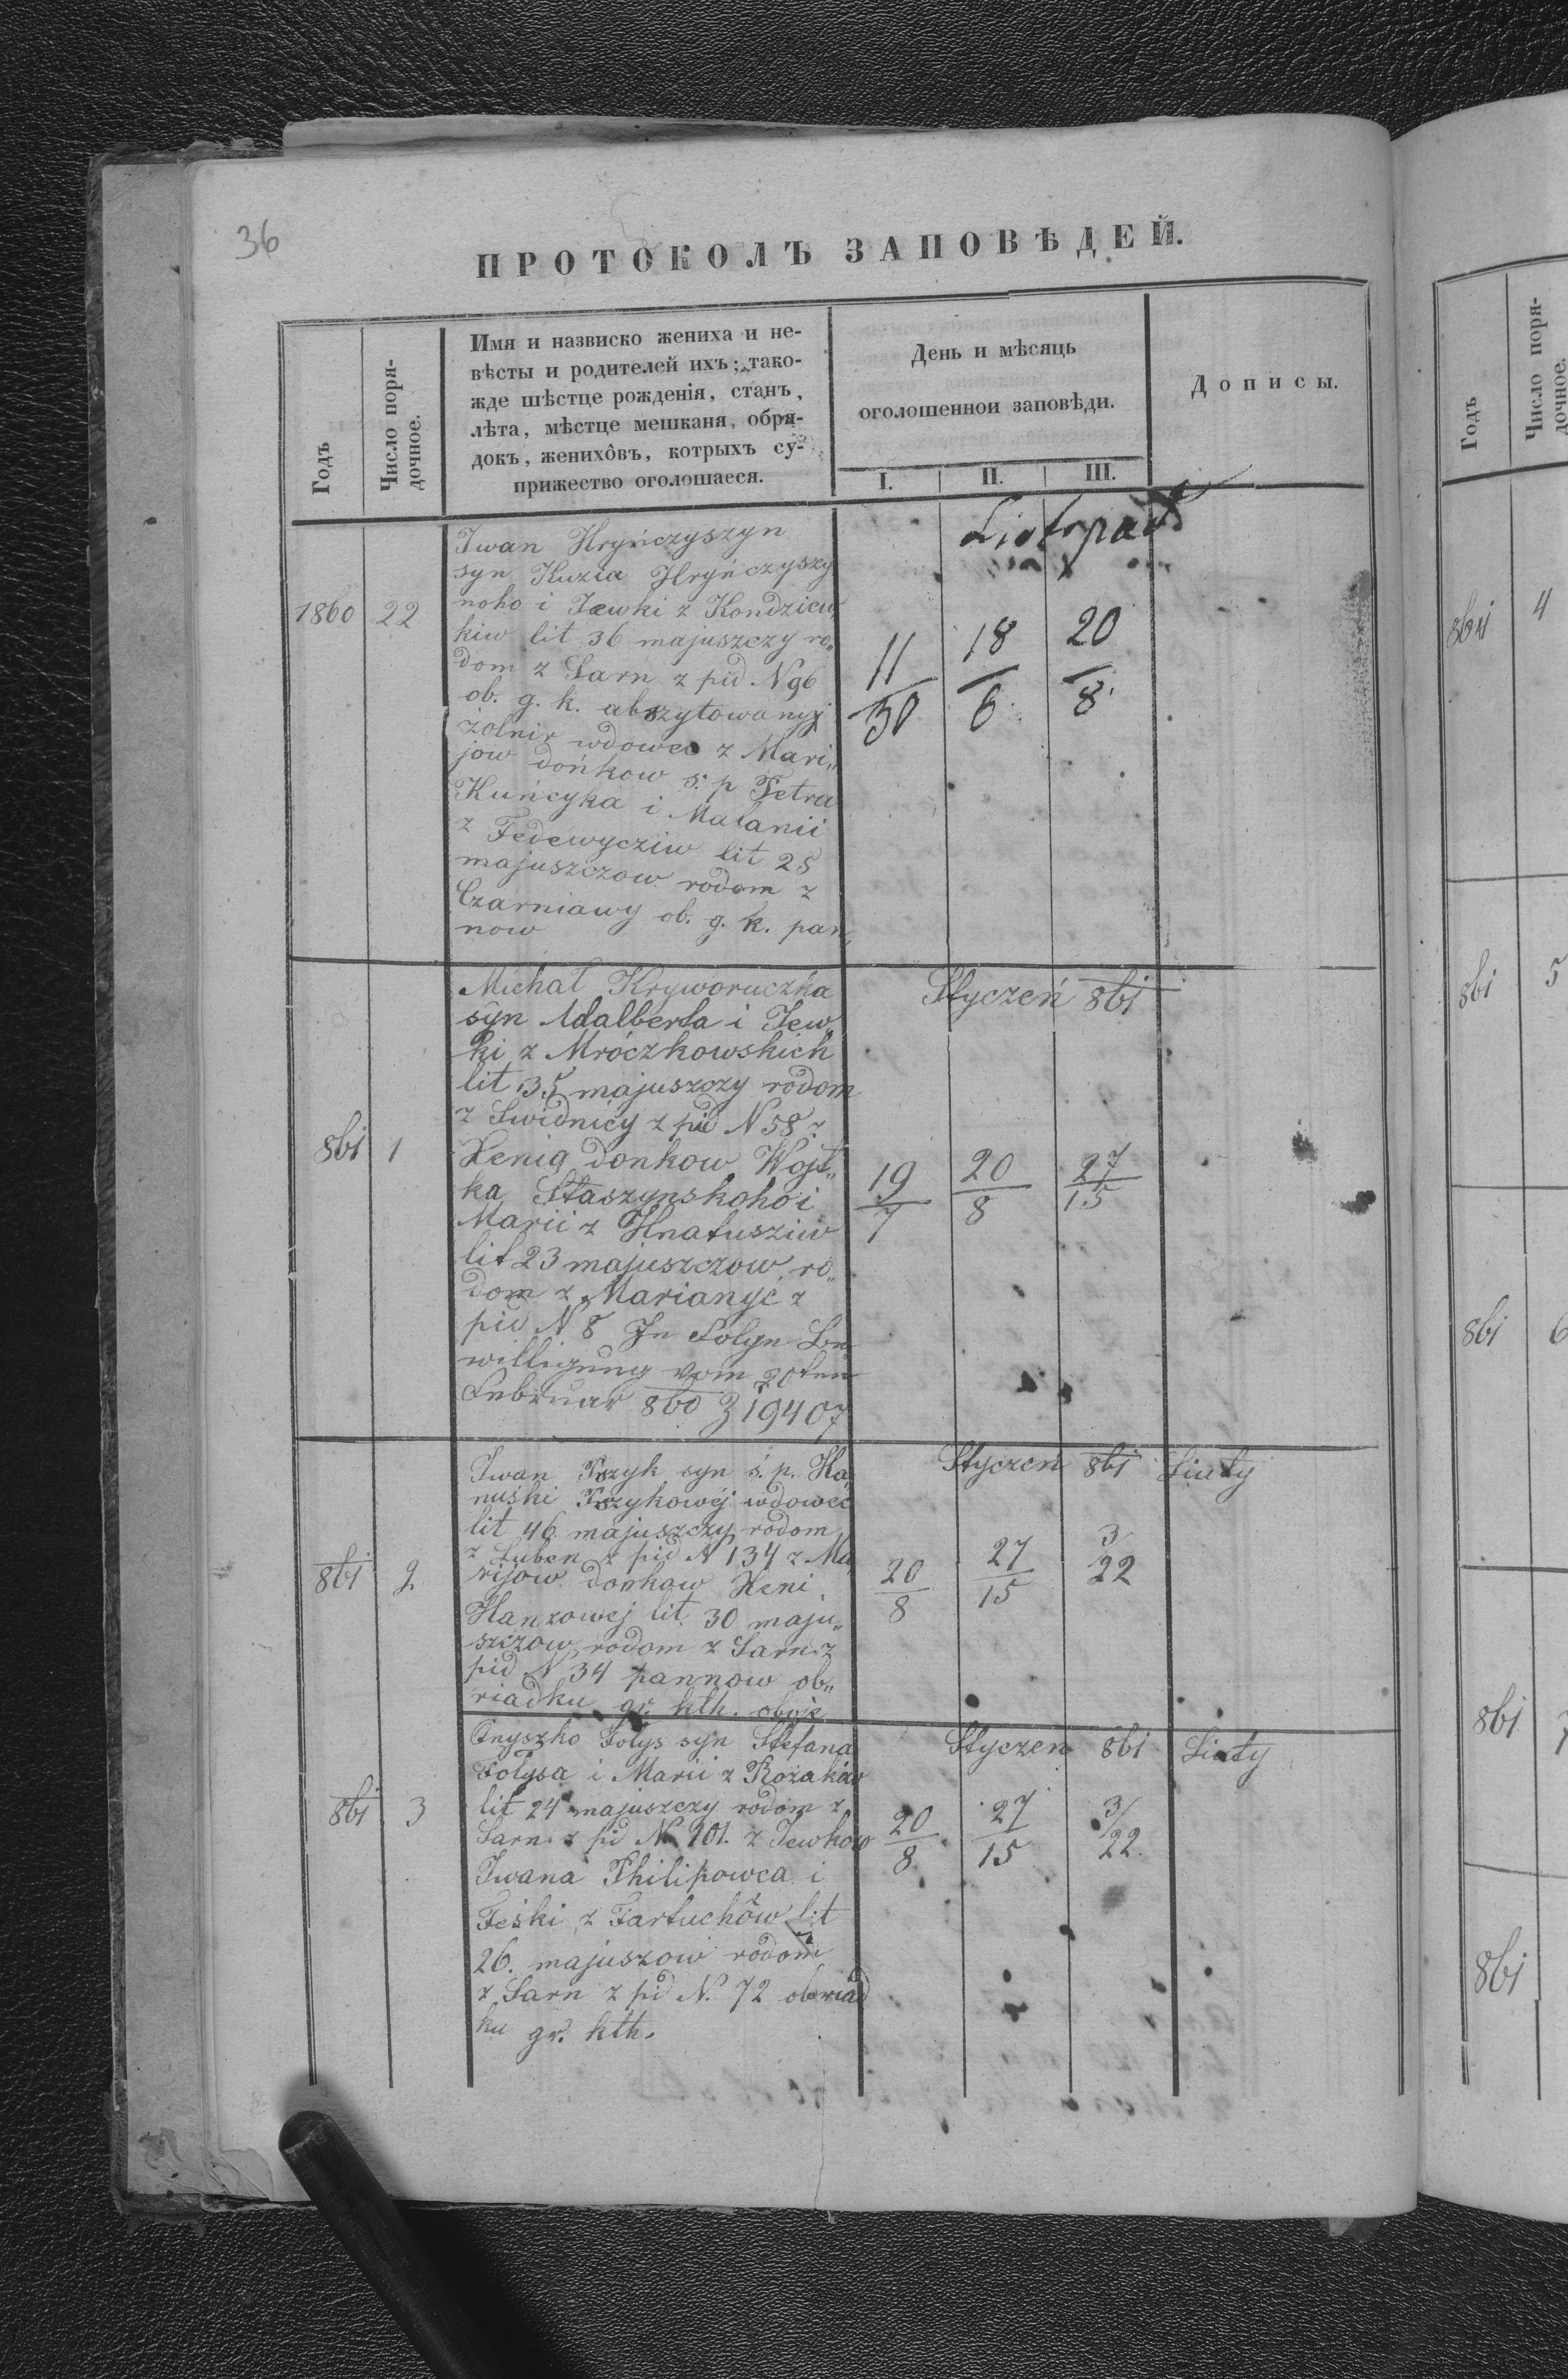 36
ПРОТОКОЛЪ ЗАПОВѢДЕЙ.
Годъ
Число поря-
дочное.
Имя и назвиско жениха и не-
вѣсты и родителей ихъ; тако-
жде шѣстце рожденія, станъ,
лѣта, мѣстце мешканя, обря-
докъ, женихôвъ, котрыхъ су-
прижество оголошаеся.
День и мѣсяць
оголошеннои заповѣди.
I. II. III.
Дописы.
1860 22
Iwan Hryńczyszyn
syn Kuzia Hryńczyszy
noho i Jewki z Kondziew
kiw lit 36 majuszczy ro„
dom z Sarn z pid N 96
ob. g. k. abszytowanyj
żolnir wdowec z Mari„
jow dońkow s. p Petra
Kuńcyka i Malanii
z Fedewycziw lit 28
majuszczow rodom z
Czarniawy ob. g. k. pan„
now
Listopad
11 18 20
30 6 8
861 1
Michał Kryworuczka
syn Adalberta i Jew„
ki z Mróczkowskich
lit 35 majuszczy rodom
z Swidnicy z pid N 58 z
Xenią donkow Wojt„
ka Staszynskoho i
Marii z Hnatusziw
lit 23 majuszczow ro„
dom z Marianyć z
pid N 8 In Folge Be„
willigung vom 20ten
Februar 860 Z 19407
Styczeń 861
19 20 27
7 8 15
861 2
Iwan Pszyk syn ś. p. Ha„
nuśki Pszykowej wdowec
lit 46 majuszczy rodom
z Luben z pid N 134 z Ma„
rijow donkow Xeni
Hanzowej lit 30 maju„
szczow rodom z Sarn z
pid N 34 pannow ob„
riadku gr. kth. oboje
Styczeń 861 Liuty
20 27 3
8 15 22
861 3
Onyszko Folys syn Stefana
Folysa i Marii z Kozaków
lit 24 majuszczy rodom z
Sarn z pid N 101. z Jewkow
Iwana Philipowca i
Feśki z Fartuchów lit
26. majuszow rodom
z Sarn z pid N. 72 obriad
ku gr. kth.
Styczeń 861 Liuty
20 27 3
8 15 22
Годъ
Число поря-
дочное.
861 4
861 5
861 6
861
861